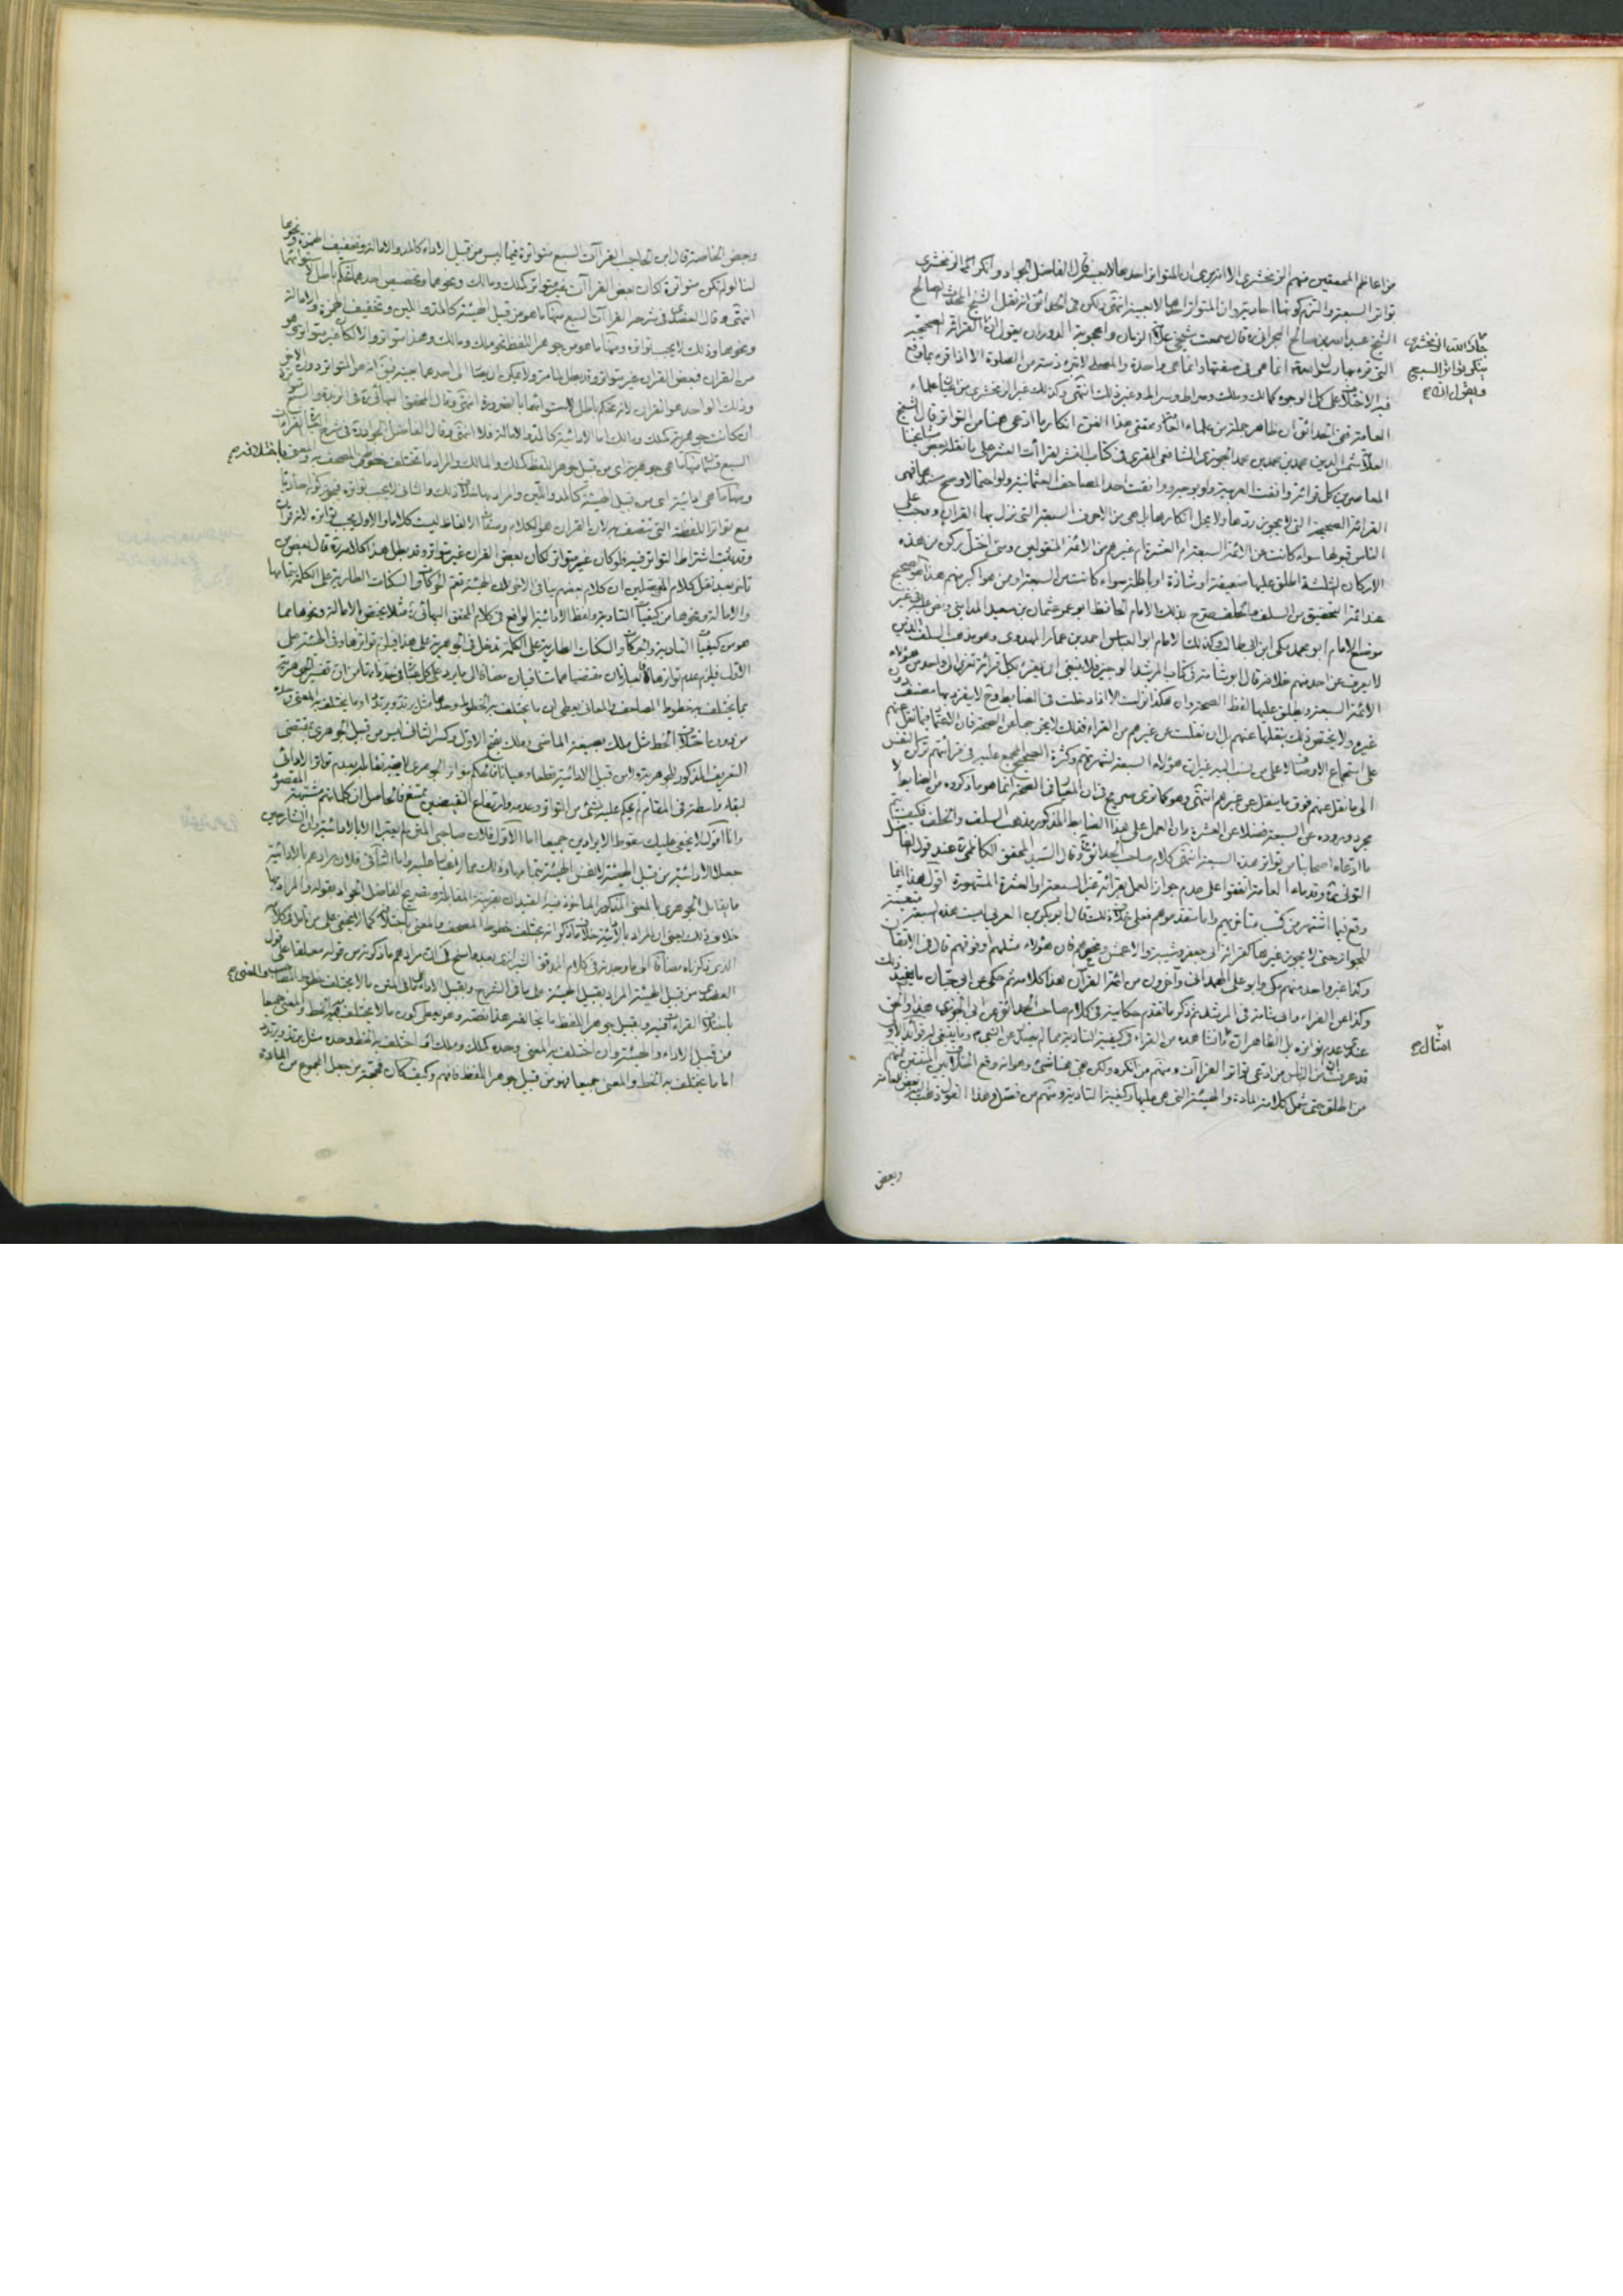 من اعاظم المحققين منهم الزمخشري الا انه يرى ان المتواتر احدها لا بعينه قال الفاضل الجواد وانكر الزمخشري
تواتر السبعة والتزم كونها احادية وان المتواتر احدها لا بعينه انتهى ولكن في الحدائق انه نقل الشيخ المحدث الصالح
الشيخ عبد الله بن صالح البحراني قال سمعت شيخي علامة الزمان واعجوبة الدوران يقول ان
جار الله الزمخشري
ينكر تواتر السبع
ويقول ان
القرائة الصحيحة
التي قرء بها رسول الله انما هي في صفتها وانما هي واحدة والمصلي لا تبرء ذمته من الصلوة الا اذا قرء بما وقع
فيه الاختلاف على كل الوجوه كمالك وملك وصراط وسراط وغير ذلك انتهى وكذلك غير الزمخشري من علماء
العامة ففي الحدائق ان ظاهر جملة من علماء العامة ومحققي هذا الفن انكار ما ادعي هنا من التواتر قال الشيخ
العلامة شمس الدين محمد بن محمد بن محمد الجوزي الشافعي المقري في كتاب النشر للقراآت العشر على ما نقله بعض مشايخنا
المعاصرين كل قرائة وافقت العربية ولو بوجه ووافقت احد المصاحف العثمانية ولو احتمالا وصح سندها فهي
القرائة الصحيحة التي لا يجوز ردها ولا يحل انكارها بل هي من الاحرف السبعة التي نزل بها القرآن ووجب على
الناس قبولها سواء كانت عن الائمة السبعة ام العشرة ام غيرهم من الائمة المقبولين ومتى اختل ركن من هذه
الاركان الثلثة اطلق عليها ضعيفة او شاذة او باطلة سواء كانت من السبعة او من هو اكبر منهم هذا هو الصحيح
عند ائمة التحقيق من السلف والخلف صرح بذلك الامام الحافظ ابو عمرو عثمان بن سعيد الداني ونص عليه في غير
موضع الامام ابو محمد مكي ابن ابي طالب وكذلك الامام ابو العباس احمد بن عمار المهدوي وهو مذهب السلف الذي
لا يعرف عن احد منهم خلافه قال ابو شامة في كتاب المرشد الوجيز فلا ينبغي ان يغتر بكل قرائة تعزى الى واحد من هؤلاء
الائمة السبعة ويطلق عليها لفظ الصحة وان هكذا انزلت الا اذا دخلت في الضابطة وح لا ينفرد بها مصنف دون
غيره ولا يختص ذلك بنقلها عنهم بل ان نقلت عن غيرهم من القراء فذلك لا يخرجها عن الصحة فان الاعتماد
على استجماع الاوصاف لا على من تنسب اليه غير ان هؤلاء السبعة لشهرتهم وكثرة الصحيح المجمع عليه في قرائتهم تركن النفس
الى ما نقل عنهم فوق ما ينقل عن غيرهم انتهى وهو كما ترى صريح في ان المعيار في الصحة انما هو ما ذكروه من الضابط لا
مجرد وروده عن السبعة فضلا عن العشرة وان العمل على هذا الضابط المذكور مذهب السلف والخلف فكيف يتم
ما ادعاه اصحابنا من تواتر هذه السبعة انتهى كلام صاحب الحدائق وقال السيد المحقق الكاظمي عند قول الفاضل
التوني وقدماء العامة اتفقوا على عدم جواز العمل بقرائة غير السبعة او العشرة المشهورة اقول هذا انما
وقع فيما اشتهر من كتب متأخريهم واما متقدموهم فعلى خلاف ذلك قال ابو بكر بن العربي ليست هذه السبعة متعينة
للجواز حتى لا يجوز غيرها كقرائة ابي جعفر وشيبة والاعمش ونحوهم فان هؤلاء مثلهم او فوقهم قال في الاتقان
وكذا غير واحد منهم مكي وابو علي الهمداني وآخرون من ائمة القرآن هذا كلامه ثم حكى عن ابي حيان ما يفيد ذلك
وكذا عن القراء وابي شامة في المرشد ثم ذكر ما تقدم حكايته في كلام صاحب الحدائق عن ابي الجوزي هذا والحق
عندي عدم تواتره بل الظاهر ان
امثال
هذه من القراء في كيفية التأدية مما لم يصل عن النبي ص وما ينبغي
قد عرفت من الناس من ادعى تواتر القراآت ومنهم من انكره ولكن هي هنا شيء وهو انه وقع الخلاف بين المثبتين فمنهم
من اطلق حتى شمل كلامه المادة والهيئة التي هي عليها وكيفية التأدية ومنهم من فصل وهذا القول ذهب اليه بعض العامة
وبعض
وبعض الخاصة قال ابن الحاجب القراآت السبع متواترة فيما ليس من قبيل الاداء كالمد والامالة وتخفيف الهمزة ونحوها
لنا لو لم تكن متواترة لكان بعض القرآن غير متواتر كملك ومالك ونحوهما وتخصيص احدهما تحكم باطل لاستوائهما
انتهى وقال العضدي في شرحه القراآت السبع منها ما هو من قبيل الهيئة كالمد واللين وتخفيف الهمزة والامالة
ونحوها وذلك لا يجب تواتره ومنها ما هو من جوهر اللفظ نحو ملك ومالك وهذا متواتر والا لكان غير متواتر وهو
من القرآن فبعض القرآن غير متواتر وقد بطل لما مر ولا يمكن ان يضاف الى احدهما بعينه فيق انه هو المتواتر دون الاخر
وذلك الواحد هو القرآن لانه تحكم باطل لاستوائهما بالضرورة انتهى وقال المحقق البهائي ره في الزبدة والسبع متواترة
ان كانت جوهرية كملك ومالك اما الادائية كالمد والامالة فلا انتهى وقال الفاضل الجواد ره في شرحه القراآت
السبع قسمان منها ما هي جوهرية اي من قبيل جوهر اللفظ كملك والمالك والمراد ما تختلف خطوط المصحف به والمعنى باختلافه
ومنها ما هي ادائية اي من قبيل الهيئة كالمد واللين والمراد بها خلاف ذلك والثاني لا يجب تواتره فيجوز كونه احاديا
مع تواتر اللفظة التي تتصف به لان القرآن هو الكلام وصفات الالفاظ ليست كلاما والاول يجب تواتره لانه قرآن
وقد ثبت اشتراط التواتر فيه فلو كان غير متواتر لكان بعض القرآن غير متواتر وقد بطل هذا كلامه ره قال بعض من
تأخر بعد نقل كلام المفصلين ان كلام بعضهم ينافي الاخر لان الهيئة تعم الحركات والسكنات الطارية على الكلمة بتمامها
والامالة ونحوها من كيفيات التأدية ولفظ الادائية الواقع في كلام المحقق البهائي ره مثلا يختص بالامالة ونحوها مما
هو من كيفيات التأدية والحركات والسكنات الطارية على الكلمة تدخل في الجوهرية على هذا فيلزم تواترها وفي الهيئة على
الاول فيلزم عدم تواترها فالعبارتان مقتضياهما متنافيان مضافا الى ما يرد على كل منهما في حد ذاتهما من ان تفسير الجوهرية
بما يختلف به خطوط المصاحف والمعاني يعطي ان ما يختلف به الخطوط وحدها مثل يرتد ويرتدد او ما يختلف به المعنى وحده
من دون اختلاف الخط مثل ملك بصيغة الماضي وملك بفتح الاول وكسر الثاني ليس من قبيل الجوهري بمقتضى
التعريف المذكور للجوهرية وليس من قبيل الادائية قطعا
لبقاء واسطة في المقام لم يحكم عليه بشيء من التواتر وعدمه وارتفاع النقيضين ممتنع فالحاصل ان كلماتهم مشتبهة المقصود
وانا اقول لا يخفى عليك سقوط الايرادين جميعا اما الاول فلان صاحبي المتن لم يعبرا الا بالادائية وان الشارحين
جعلا الادائية من قبيل الهيئة لا نفس الهيئة بتمامها وذلك مما لا غبار عليه واما الثاني فلان مرادهم بالادائية
ما يقابل الجوهري بالمعنى المذكور المأخوذ فيه القيدان بقرينة المقابلة وتصريح الفاضل الجواد بقوله والمراد بها
خلاف ذلك يعني ان المراد بالادائية خلاف ما ذكر انه تختلف خطوط المصحف والمعنى باختلافه كما لا يخفى على من تأمل في كلامه
الذي ذكرناه مضافا الى ما وجدته في كلام المدقق الشيرازي بعد ما سنح في ان مرادهم ما ذكرته من قوله معلقا على قول
العضدي من قبيل الهيئة المراد بقبيل الهيئة على ما في الشرح وبقبيل الاداء على ما في المتن ما لا يختلف خطوط المصاحف والمعنى
باختلاف القراءات فيه وبقبيل جوهر اللفظ ما يخالفه هذا نصه وهو يعطي كون ما لا يختلف به الخط والمعنى جميعا
من قبيل الاداء والهيئة وان اختلف به المعنى وحده كملك وملك او اختلف به الخط وحده مثل يرتد ويرتدد
اما ما يختلف به الخط والمعنى جميعا فهو من قبيل جوهر اللفظ فافهم وكيف كان فحجة من جعل المجموع من المادة